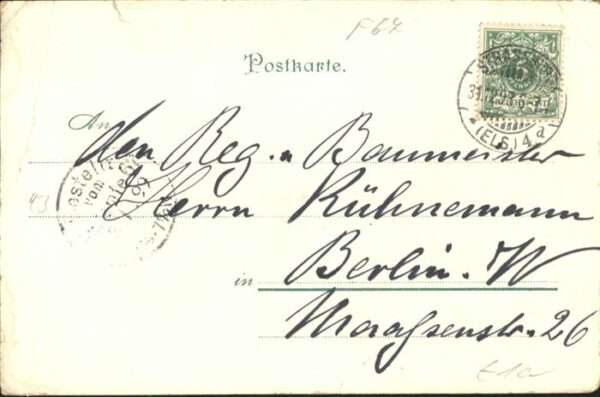 F67
Postkarte.
STRASSBURG
5
(ELS.) 4 a
An den Reg. u Baumeister
Herrn Kühnemann
in Berlin. W
Maaßenstr. 26